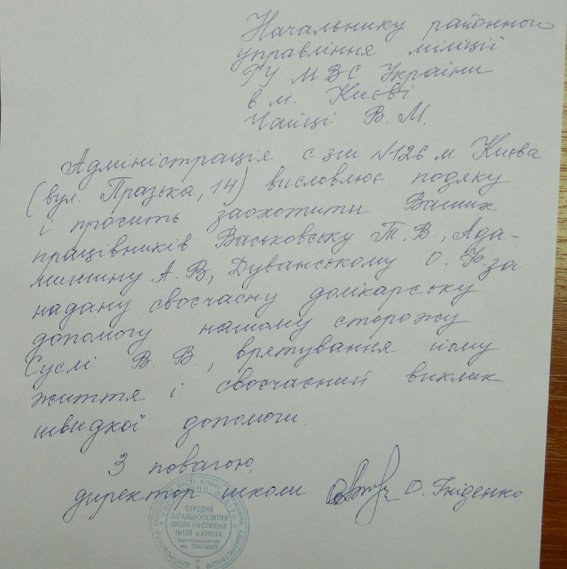 Начальнику районного
управління міліції
ГУ МВС України
в м. Києві
Чайці В. М.
Адміністрація сзш №126 м. Києва
(вул. Празька, 14) висловлює подяку
і просить заохотити Ваших
працівників Васьковську Т. В.,
А. В., Дуванському О. Ф за
надану своєчасну долікарську
допомогу нашому сторожу
Суслі В. В., врятування йому
життя і своєчасний виклик
швидкої допомоги.
З повагою,
директор школи О. Гніденко
СЕРЕДНЯ
ЗАГАЛЬНООСВІТНЯ
ШКОЛА І-ІІІ СТУПЕНІВ
№126 м.КИЄВА